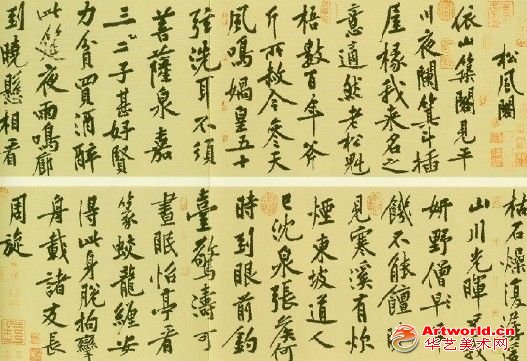 松風閣
依山築閣見平
川夜闌箕斗插
屋椽我來名之
意適然老松魁
梧數百年斧
斤所赦今參天
風鳴媧皇五十
弦洗耳不須
菩薩泉嘉
三二子甚好賢
力貧買酒醉
此筵夜雨鳴廊
到曉懸相看
枯石燥復潺
山川光暉
妍野僧早
饑不能饘
見寒溪有炊
煙東坡道人
已沈泉張侯何
時到眼前釣
臺驚濤可
晝眠怡亭看
篆蛟龍纏安
得此身脫拘攣
舟載諸友長
周旋
Artworld.cn
华艺美术网